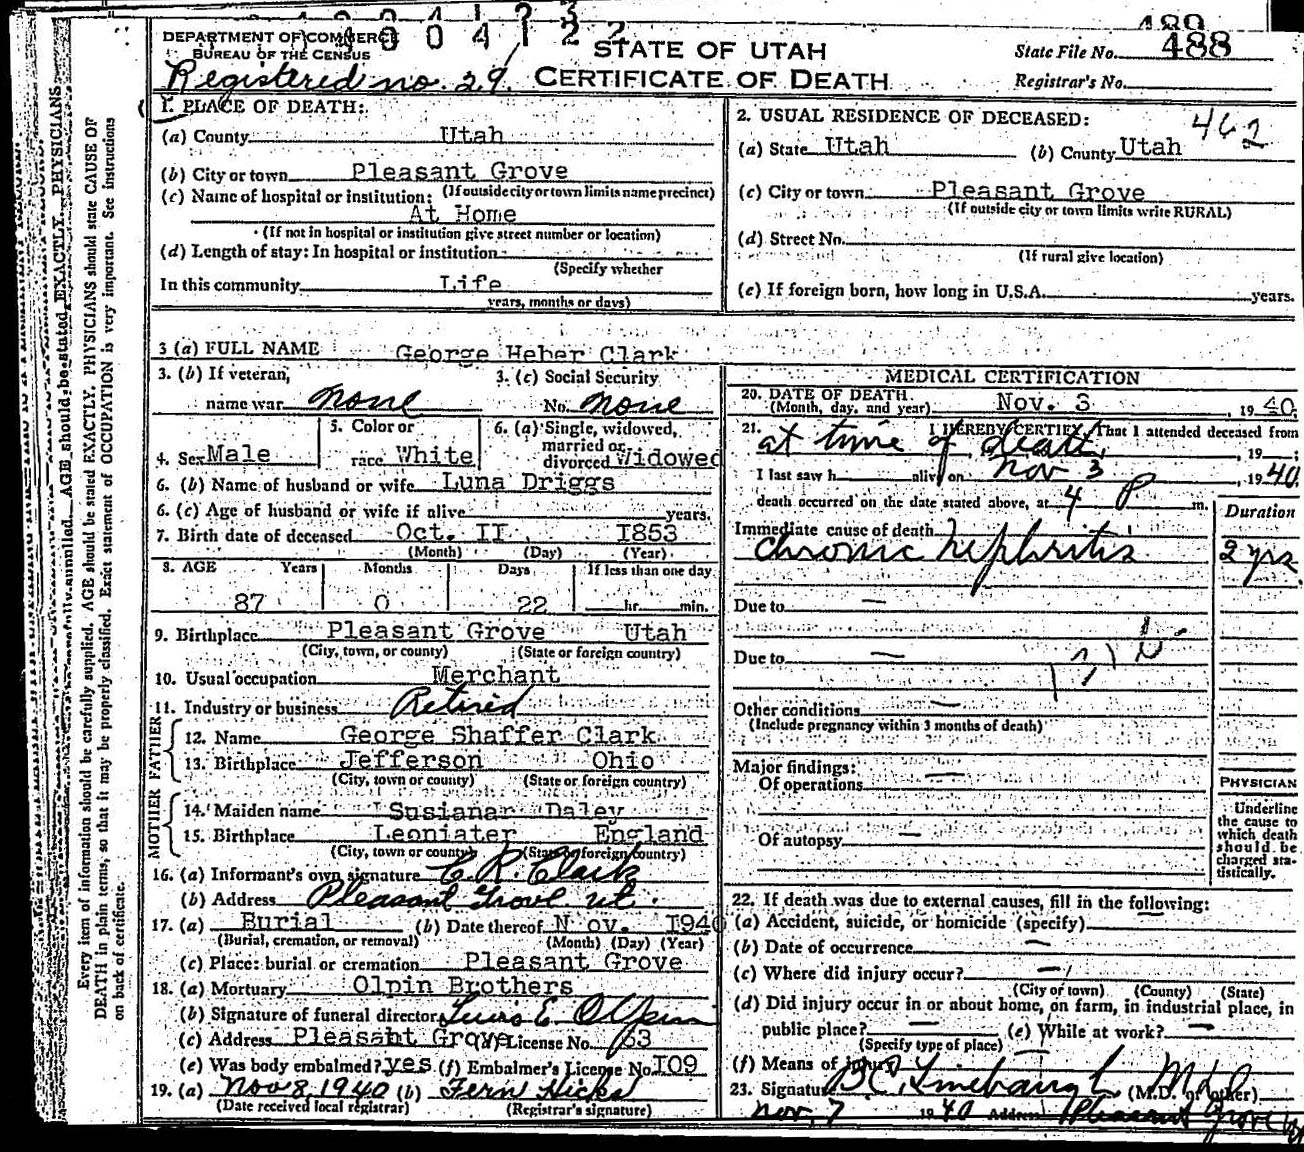 DEPARTMENT OF COMMERCE
BUREAU OF THE CENSUS
Registered no. 29.
STATE OF UTAH
CERTIFICATE OF DEATH
489
State File No. 488
Registrar's No.
1. PLACE OF DEATH:
(a) County Utah
(b) City or town Pleasant Grove
(If outside city or town limits name precinct)
(c) Name of hospital or institution:
At Home
(If not in hospital or institution give street number or location)
(d) Length of stay: In hospital or institution
(Specify whether
In this community Life
years, months or days)
2. USUAL RESIDENCE OF DECEASED: 462
(a) State Utah (b) County Utah
(c) City or town Pleasant Grove
(If outside city or town limits write RURAL)
(d) Street No.
(If rural give location)
(e) If foreign born, how long in U.S.A. years.
3 (a) FULL NAME George Heber Clark
3. (b) If veteran, name war none
3. (c) Social Security No. none
4. Sex Male
5. Color or race White
6. (a) Single, widowed, married or divorced Widowed
6. (b) Name of husband or wife Luna Driggs
6. (c) Age of husband or wife if alive years.
7. Birth date of deceased Oct. II I853
(Month) (Day) (Year)
8. AGE Years Months Days If less than one day
87 0 22 hr. min.
9. Birthplace Pleasant Grove Utah
(City, town, or county) (State or foreign country)
10. Usual occupation Merchant
11. Industry or business Retired
FATHER
12. Name George Shaffer Clark
13. Birthplace Jefferson Ohio
(City, town or county) (State or foreign country)
MOTHER
14. Maiden name Susianar Daley
15. Birthplace Leoniater England
(City, town or county) (State or foreign country)
16. (a) Informant's own signature C. R. Clark
(b) Address Pleasant Grove Ut.
17. (a) Burial (b) Date thereof N ov. I940
(Burial, cremation, or removal) (Month) (Day) (Year)
(c) Place: burial or cremation Pleasant Grove
18. (a) Mortuary Olpin Brothers
(b) Signature of funeral director E. Olpin
(c) Address Pleasant Grove License No. 63
(e) Was body embalmed? yes (f) Embalmer's License No. I09
19. (a) Nov 8, 1940 (b) Fern Hicks
(Date received local registrar) (Registrar's signature)
MEDICAL CERTIFICATION
20. DATE OF DEATH
(Month, day, and year) Nov. 3, 19 40
21. I HEREBY CERTIFY, That I attended deceased from
at time of death, 19
I last saw h alive on Nov 3, 19 40
death occurred on the date stated above, at 4 P m.
Duration
Immediate cause of death
Chronic Nephritis 2 yrs
Due to —
Due to —
Other conditions —
(Include pregnancy within 3 months of death)
Major findings:
Of operations —
Of autopsy —
PHYSICIAN
Underline the cause to which death should be charged statistically.
22. If death was due to external causes, fill in the following:
(a) Accident, suicide, or homicide (specify) —
(b) Date of occurrence —
(c) Where did injury occur? —
(City or town) (County) (State)
(d) Did injury occur in or about home, on farm, in industrial place, in
public place? — (e) While at work? —
(Specify type of place)
(f) Means of injury
23. Signature B.C. Linebaugh (M.D. or other) M.D.
Nov. 7 1940 Address Pleasant Grove
Every item of information should be carefully supplied. AGE should be stated EXACTLY. PHYSICIANS should state CAUSE OF
DEATH in plain terms, so that it may be properly classified. Exact statement of OCCUPATION is very important. See instructions
on back of certificate.